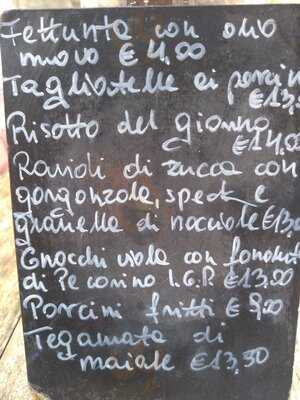 Fettunta con olio
nuovo € 4,00
Tagliatelle ai porcini
€13,
Risotto del giorno
€14,0
Ravioli di zucca con
gorgonzola, speck e
granella di nocciole €13,
Gnocchi viola con fondut
di Pecorino I.G.P. €13,00
Porcini fritti € 9,00
Tegamata di
maiale €13,50